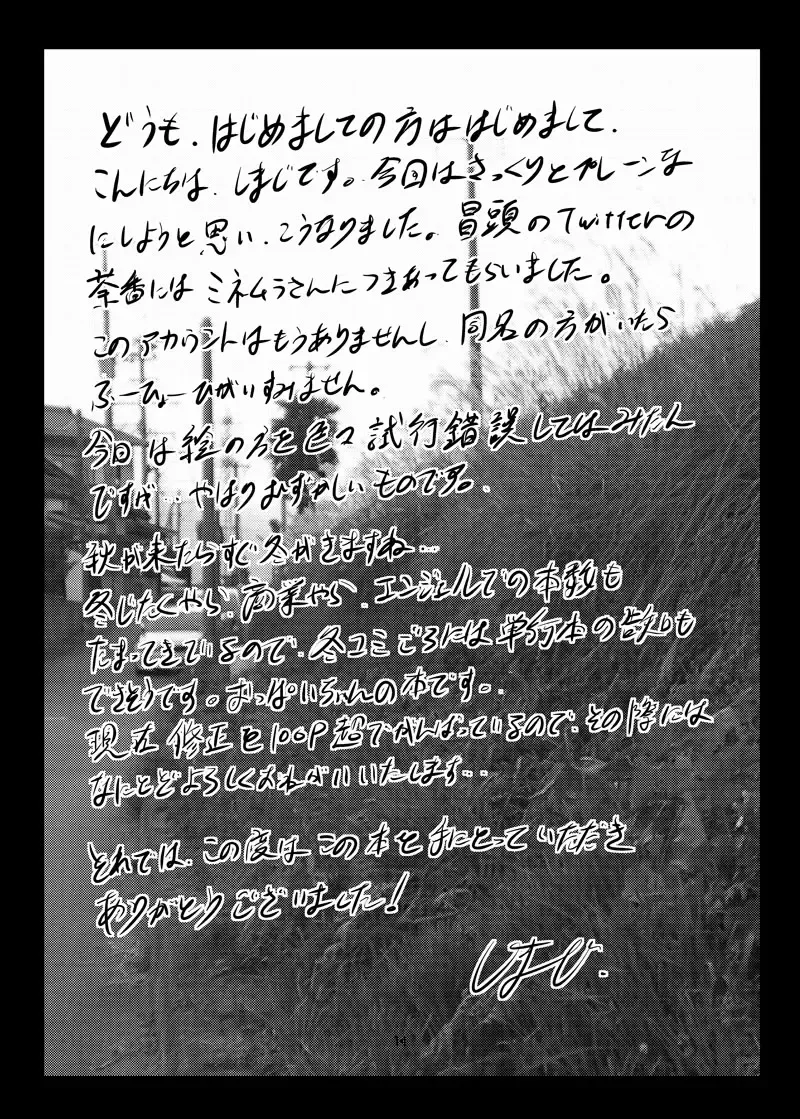 どうも、はじめましての方ははじめまして、
こんにちは、しまじです。今回はさっくりとプレーンな
にしようと思い、こうなりました。冒頭のTwitterの
茶番には ミネムラさんにつきあってもらいました。
このアカウントはもうありませんし、同名の方がいたら
ふーひょーひがいすみません。
今回は絵の方を色々試行錯誤してはみたん
ですが… やはりむずかしいものです。
秋が来たらすぐ冬がきますね…
冬じたくやら、商業やら、エンジェルでの本数も
たまってきているので、冬コミごろには単行本の話しも
できそうです。おっぱいちゃんの本です。
現在修正を100P超でがんばっているので、その際には
なにとぞよろしくおねがいいたします…
それでは、この度はこの本を手にとっていただき
ありがとうございました!
14